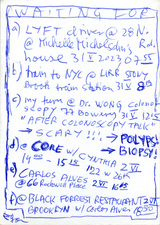 WAITING FOR
a) LYFT driver @ 28 N.
@ Michelle Micholedni's Rd.
house 31 V 2023 0755
b) train to NYC @ LIRR STONY
Brook train station 31 V 8
c) my turn @ Dr. WONG colonoscopy
77 Bowery 31 V 1215
"AFTER COLONOSCOPY TALK"
→ SCARY!!! → POLYPS!
BIOPSY!
d) @ CORE w/ CYNTHIA 2 VI
14 00 – 15 10 122 W 26
e) CARLOS ALVES 2 VI
@ 66 Rockwell Place
f) @ BLACK FORREST RESTAURANT 2 VI
BROOKLYN w/ Carlos Alves 1850